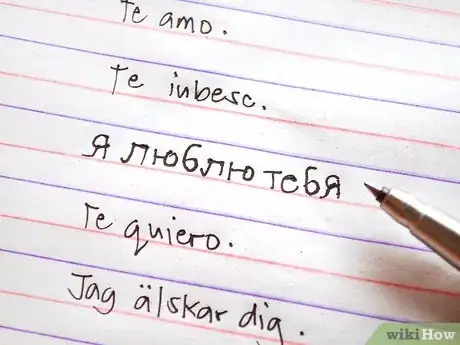 Te amo.
Te inbesc.
Я люблю тебя
Te quiero.
Jag älskar dig.
wikiHow